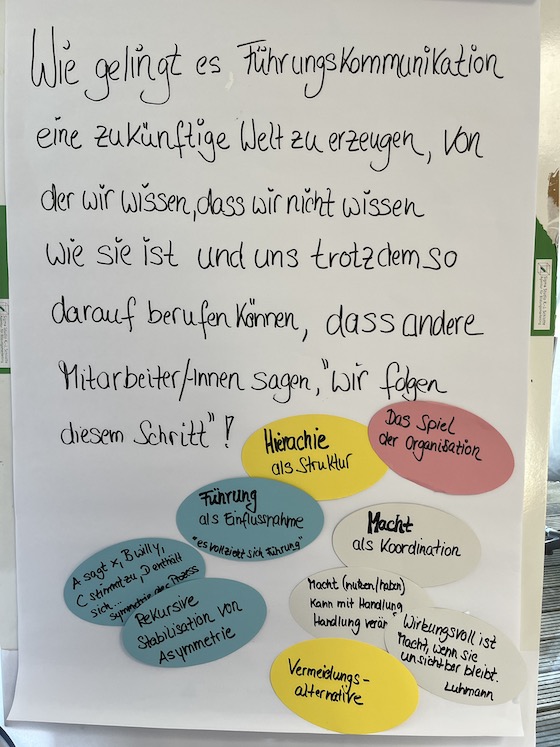 Wie gelingt es, Führungskommunikation
eine zukünftige Welt zu erzeugen, von
der wir wissen, dass wir nicht wissen
wie sie ist und uns trotzdem so
darauf berufen können, dass andere
Mitarbeiter/-innen sagen, "wir folgen
diesem Schritt"!
Das Spiel
der Organisation
Hierachie
als Struktur
Führung
als Einflussnahme
"es vollzieht sich Führung"
Macht
als Koordination
A sagt x, B will y,
C stimmt zu, D enthält
sich... Symmetrie Prozess
Rekursive
Stabilisation von
Asymmetrie
Macht (nutzen/haben)
kann mit Handlung
Handlung verän
"Wirkungsvoll ist
Macht, wenn sie
unsichtbar bleibt.
Luhmann
Vermeidungs-
alternative